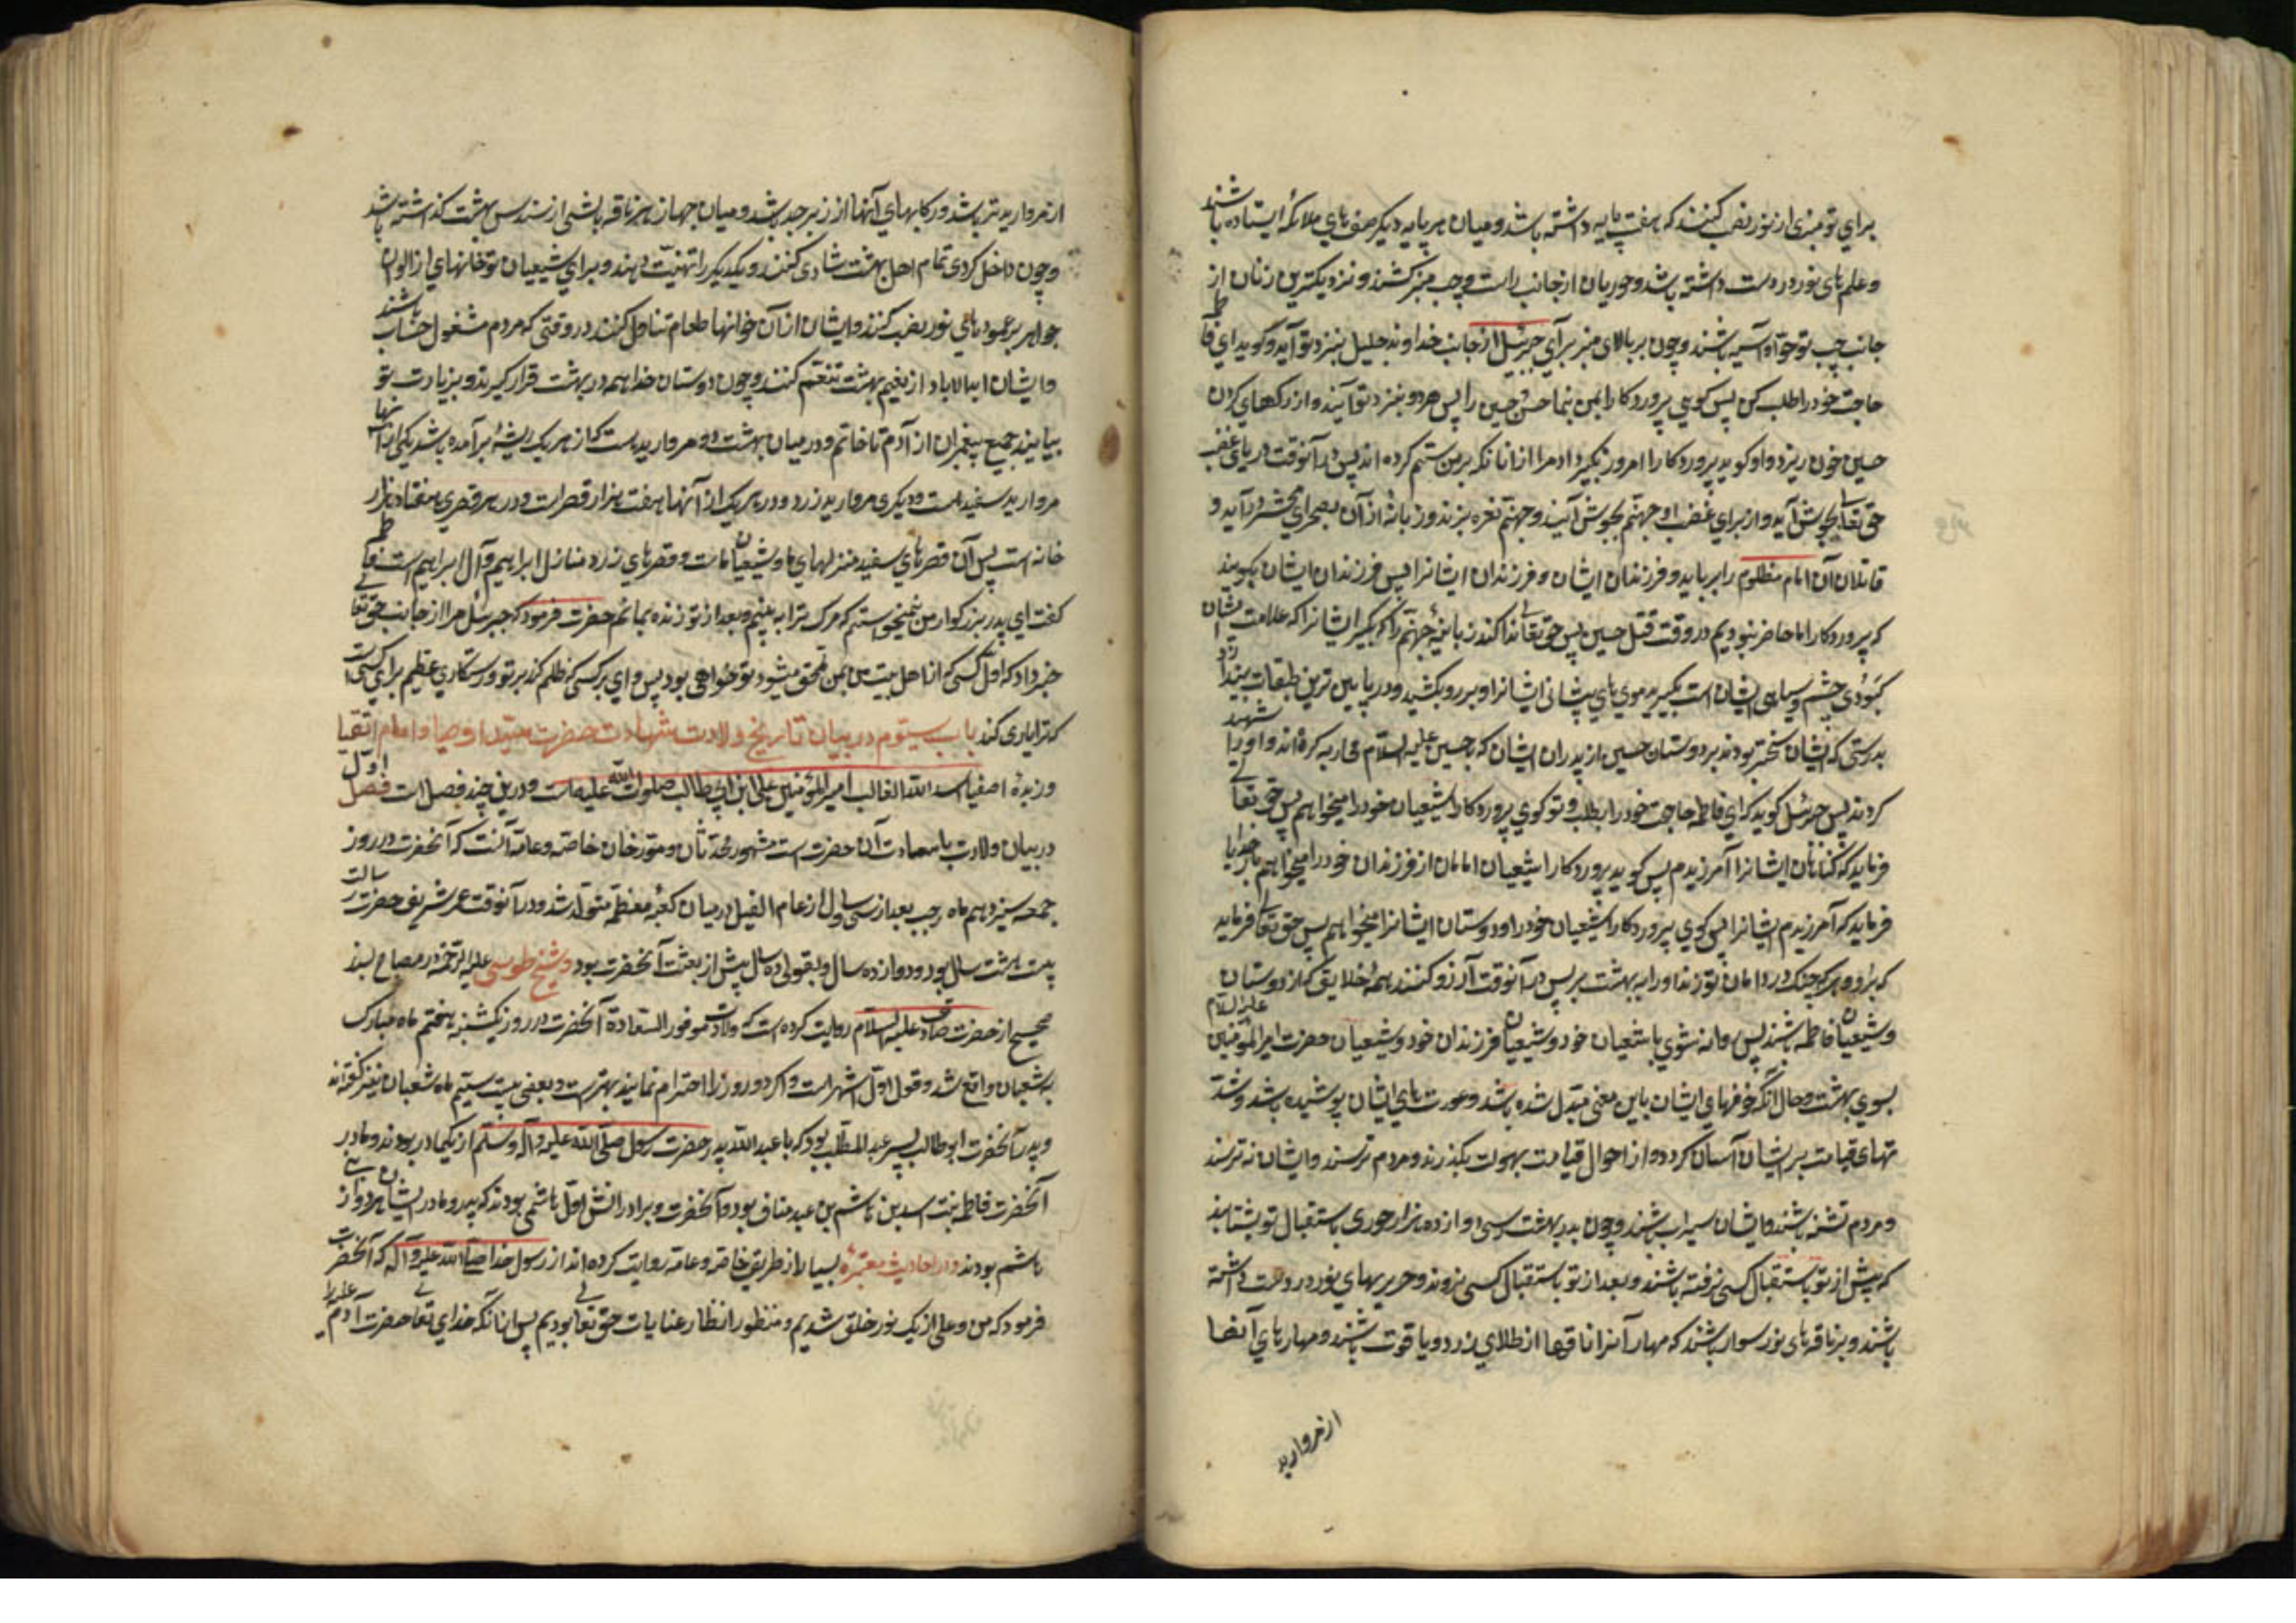 برای تو منبری از نور نصب کنند که هفت پایه داشته باشد و میان هر پایه دیگر صف‌های ملائکه ایستاده باشند
و علم‌های نور در دست داشته باشد و حوریان از جانب راست و چپ منبر کشند و نزدیکترین زنان از
جانب چپ تو حوا و آسیه باشند و چون بر بالای منبر برآی جبرئیل از جانب خداوند جلیل بنزد تو آید و گوید ای فاطمه
حاجت خود را طلب کن پس گویی پروردگارا بمن بنما حسن و حسین را پس هر دو بنزد تو آیند و از رگهای گردن
حسین خون ریزد و او گوید پروردگارا امروز بگیر داد مرا از آنانکه بر من ستم کرده‌اند پس در آنوقت دریای غضب
حق تعالی بجوش آید و از برای غضب او جهنم بجوش آیند و جهنم نعره بزند و زبانه از آن بصحرای محشر درآید و
قاتلان آن امام مظلوم را برباید و فرزندان ایشان و فرزندان فرزندان ایشانرا پس فرزندان ایشان بگویند
که پروردگارا ما حاضر نبودیم در وقت قتل حسین پس حق تعالی ندا کند زبانیهٔ جهنم را که بگیر ایشانرا که علامت ایشان
کبودی چشم و سیاهی ایشان است بگیرید موی‌های پیشانی ایشانرا و بر رو بکشید و در پایین ترین طبقات بیندازید
بدرستی که ایشان سختر بودند بر دوستان حسین از پدران ایشان که با حسین علیه السلام محاربه کرده‌اند و او را شهید
کردند پس جبرئیل گوید که ای فاطمه حاجت خود را بطلب و تو گوی پروردگارا شیعیان خود را میخواهم پس حق تعالی
فرماید که گناهان ایشانرا آمرزیدم پس گوید پروردگارا شیعیان امامان از فرزندان خود را میخواهم باز خدایا
فرماید که آمرزیدم ایشانرا پس گوی پروردگارا شیعیان خود را و دوستان ایشانرا میخواهم پس حق تعالی فرماید
که برو و هر که چنگ در دامان تو زند او را به بهشت بر پس در آنوقت آرزو کنند همهٔ خلایق که از دوستان
و شیعیان فاطمه باشند پس روانه شوی با شیعیان خود و شیعیان فرزندان خود و شیعیان حضرت امیرالمؤمنین علیه السلام
بسوی بهشت و حال آنکه خوفهای ایشان باین معنی مبدل شده باشد و عورت‌های ایشان پوشیده باشد و شد
تهای قیامت بر ایشان آسان گردد و از احوال قیامت بسهولت بگذرند و مردم ترسند و ایشان نه ترسند
و مردم تشنه باشند و ایشان سیراب باشند و چون بدر بهشت رسی دوازده هزار حوری باستقبال تو بشتابند
که پیش از تو باستقبال کسی نرفته باشند و بعد از تو باستقبال کسی نروند و حربه‌های نور در دست داشته
باشند و بر ناقه‌های نور سوار باشند که مهار آنرا ناقها از طلای زرد و یاقوت باشند و مهارهای آنها
از مروارید
از مروارید تر باشد و رکابهای آنها از زبرجد باشد و میان جهاز هر ناقه بالشی از سندس بهشت گذاشته باشد
و چون داخل کردی تمام اهل بهشت شادی کنند و یکدیگر را تهنیت دهند و برای شیعیان تو خانهای از الوان
جواهر بر عمودهای نور نصب کنند و ایشان از آن خوانها طعام تناول کنند در وقتی که مردم مشغول حساب باشند
و ایشان ابدالاباد از نعیم بهشت تنعم کنند و چون دوستان خدا همه در بهشت قرار گیرند و بزیارت تو
بیایند جمیع پیغمبران از آدم تا خاتم و در میان بهشت دو مروارید است که از هر یک ریشه برآمده باشد یکی از آنها
مروارید سفید است و دیگری مروارید زرد و در هر یک از آنها هفت هزار قصر است و در هر قصری هفتاد هزار
خانه است پس آن قصرهای سفید منزلهای ما و شیعیان ماست و قصرهای زرد منازل ابراهیم و آل ابراهیم است فاطمه
گفت ای پدر بزرگوار من نمیخواستم که مرگ ترا به بینم و بعد از تو زنده بمانم حضرت فرمود که جبرئیل مرا از جانب حق تعالی
خبر داد که اول کسی که از اهل بیت من بمن ملحق میشود تو خواهی بود پس وای بر کسی که ظلم کند بر تو و رستگاری عظیم برای کسی است
که ترا یاری کند باب سیوم در بیان تاریخ ولادت شهادت حضرت سید اوصیا و امام اتقیا
و زبدهٔ اصفیا اسد الله الغالب امیرالمؤمنین علی ابن ابی طالب صلوات الله علیه است و درین چند فصل است فصل اول
در بیان ولادت باسعادت آن حضرت است مشهور محدثان و مورخان خاصه و عامه آنست که آنحضرت در روز
جمعه سیزدهم ماه رجب بعد از سی سال از عام الفیل در میان کعبهٔ معظمه متولد شد و در آنوقت عمر شریف حضرت رسالت
بیست هشت سال بود و دوازده سال و بقولی ده سال پیش از بعثت آنحضرت بود و شیخ طوسی علیه الرحمه در مصباح بسند
صحیح از حضرت صادق علیه السلام روایت کرده است که ولادت موفور السعادة آنحضرت در روز یکشنبه هفتم ماه مبارک
شعبان واقع شد و قول اول اشهر است و اگر دو روز را احترام نمایند بهتر است و بعضی بیست سیم ماه شعبان نیز گفته‌اند
و پدر آنحضرت ابوطالب پسر عبدالمطلب بود که با عبدالله پدر حضرت رسول صلی الله علیه و آله و سلم از یکمادر بودند و مادر
آنحضرت فاطمه بنت اسد بن هاشم بن عبد مناف بود و آنحضرت و برادرانش اول هاشمی بودند که پدر و مادر ایشان هر دو از بنی
هاشم بودند و در احادیث معتبره بسیار از طریق خاصه و عامه روایت کرده‌اند از رسول خدا صلی الله علیه و آله که آنحضرت
فرمود که من و علی از یک نور خلق شدیم و منظور انظار عنایات حق تعالی بودیم پس از آنکه خدای تعالی حضرت آدم علیه را